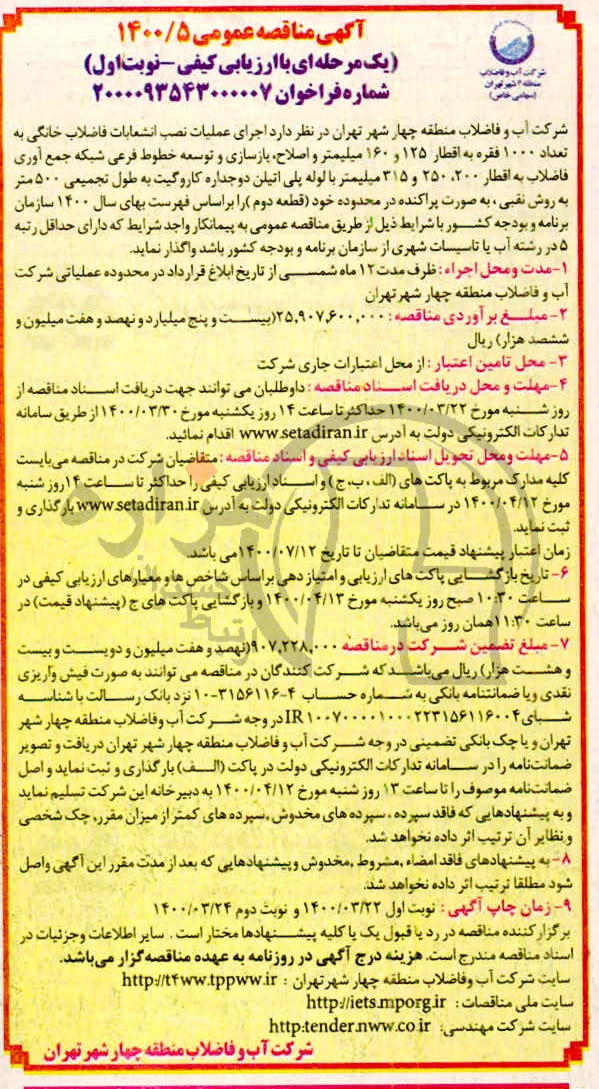 آگهی مناقصه عمومی ۱۴۰۰/۵
(یک مرحله‌ای با ارزیابی کیفی - نوبت اول)
شماره فراخوان ۲۰۰۰۰۹۳۵۴۳۰۰۰۰۰۷
شرکت آب و فاضلاب
منطقه ۴ شهر تهران
(سهامی خاص)
شرکت آب و فاضلاب منطقه چهار شهر تهران در نظر دارد اجرای عملیات نصب انشعابات فاضلاب خانگی به
تعداد ۱۰۰۰ فقره به اقطار ۱۲۵ و ۱۶۰ میلیمتر و اصلاح، بازسازی و توسعه خطوط فرعی شبکه جمع آوری
فاضلاب به اقطار ۲۰۰، ۲۵۰ و ۳۱۵ میلیمتر با لوله پلی اتیلن دوجداره کاروگیت به طول تجمیعی ۵۰۰ متر
به روش نقبی ، به صورت پراکنده در محدوده خود (قطعه دوم )را براساس فهرست بهای سال ۱۴۰۰ سازمان
برنامه و بودجه کشور با شرایط ذیل از طریق مناقصه عمومی به پیمانکار واجد شرایط که دارای حداقل رتبه
۵ در رشته آب یا تاسیسات شهری از سازمان برنامه و بودجه کشور باشد واگذار نماید.
۱-مدت ومحل اجراء : ظرف مدت ۱۲ ماه شمسی از تاریخ ابلاغ قرارداد در محدوده عملیاتی شرکت
آب و فاضلاب منطقه چهار شهر تهران
۲- مبلغ برآوردی مناقصه : ۲۵,۹۰۷,۶۰۰,۰۰۰(بیست و پنج میلیارد و نهصد و هفت میلیون و
ششصد هزار) ریال
۳- محل تامین اعتبار : از محل اعتبارات جاری شرکت
۴-مهلت و محل دریافت اسناد مناقصه : داوطلبان می توانند جهت دریافت اسناد مناقصه از
روز شنبه مورخ ۱۴۰۰/۰۳/۲۲ حداکثر تا ساعت ۱۴ روز یکشنبه مورخ ۱۴۰۰/۰۳/۳۰ از طریق سامانه
تدارکات الکترونیکی دولت به آدرس www.setadiran.ir اقدام نمائید.
۵-مهلت ومحل تحویل اسناد ارزیابی کیفی و اسناد مناقصه : متقاضیان شرکت در مناقصه می‌بایست
کلیه مدارک مربوط به پاکت های (الف ، ب، ج) و اسناد ارزیابی کیفی را حداکثر تا ساعت ۱۴ روز شنبه
مورخ ۱۴۰۰/۰۴/۱۲ در سامانه تدارکات الکترونیکی دولت به آدرس www.setadiran.ir بارگذاری و
ثبت نماید.
زمان اعتبار پیشنهاد قیمت متقاضیان تا تاریخ ۱۴۰۰/۰۷/۱۲می باشد.
۶- تاریخ بازگشایی پاکت های ارزیابی و امتیاز دهی براساس شاخص ها و معیارهای ارزیابی کیفی در
ساعت ۱۰:۳۰ صبح روز یکشنبه مورخ ۱۴۰۰/۰۴/۱۳ و بازگشایی پاکت های ج (پیشنهاد قیمت) در
ساعت ۱۱:۳۰ همان روز می‌باشد.
۷- مبلغ تضمین شرکت در مناقصه ۹۰۷,۲۲۸,۰۰۰(نهصد و هفت میلیون و دویست و بیست
و هشت هزار) ریال می‌باشد که شرکت کنندگان در مناقصه می توانند به صورت فیش واریزی
نقدی ویا ضمانتنامه بانکی به شماره حساب ۴-۳۱۵۶۱۱۶-۱۰ نزد بانک رسالت با شناسه
شبای IR ۱۰۰۷۰۰۰۰۱۰۰۰۲۲۳۱۵۶۱۱۶۰۰۴ در وجه شرکت آب وفاضلاب منطقه چهار شهر
تهران و یا چک بانکی تضمینی در وجه شرکت آب و فاضلاب منطقه چهار شهر تهران دریافت و تصویر
ضمانت‌نامه را در سامانه تدارکات الکترونیکی دولت در پاکت (الف) بارگذاری و ثبت نماید و اصل
ضمانت‌نامه موصوف را تا ساعت ۱۳ روز شنبه مورخ ۱۴۰۰/۰۴/۱۲ به دبیرخانه این شرکت تسلیم نماید
و به پیشنهادهایی که فاقد سپرده ، سپرده های مخدوش ,سپرده های کمتر از میزان مقرر, چک شخصی
و نظایر آن ترتیب اثر داده نخواهد شد.
۸- به پیشنهادهای فاقد امضاء ,مشروط ,مخدوش و پیشنهادهایی که بعد از مدت مقرر این آگهی واصل
شود مطلقا ترتیب اثر داده نخواهد شد.
۹- زمان چاپ آگهی : نوبت اول ۱۴۰۰/۰۳/۲۲ و نوبت دوم ۱۴۰۰/۰۳/۲۴
برگزار کننده مناقصه در رد یا قبول یک یا کلیه پیشنهادها مختار است . سایر اطلاعات وجزئیات در
اسناد مناقصه مندرج است. هزینه درج آگهی در روزنامه به عهده مناقصه گزار می‌باشد.
سایت شرکت آب وفاضلاب منطقه چهار شهرتهران : http://t۴ww.tppww.ir
سایت ملی مناقصات : http://iets.mporg.ir
سایت شرکت مهندسی: http:tender.nww.co.ir
شرکت آب و فاضلاب منطقه چهار شهر تهران